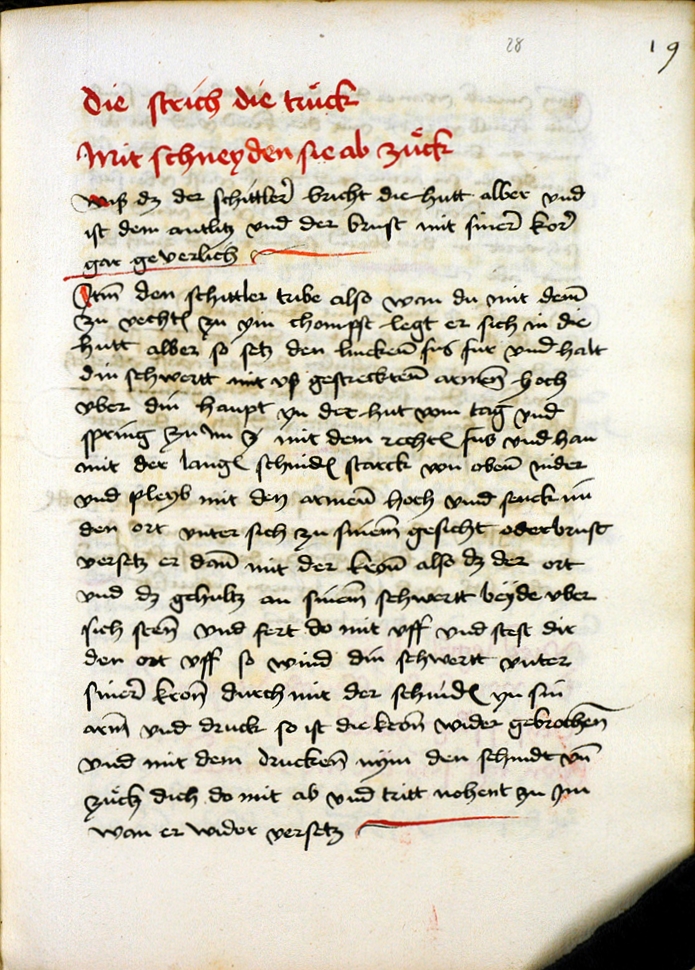 28
19
die strich die trück
Mit schneyden sie ab zück
Wiß dz der schittler bricht die hutt alber vnd
ist dem antlitz vnd der brust mit siner kor
gar geuerlich
Itm den schittler tribe also wan du mit dem
zu vechte zu yin chompst legt er sich in die
hutt alber so setz den lincken fus fur vnd halt
din schwertt mit vß gestreckten armen hoch
vber din haupt yn der hut vom tag vnd
spring zu im mit dem rechte fus vnd hau
mit der lange schnide starck von oben nider
vnd pleyb mit den armen hoch vnd senck im
den ort vnter sich zu sinem gesicht oder brust
versetz er dan mit der kron also dz der ort
vnd dz gehultz an sinem schwertt beyde vber
sich sten vnd fert do mit vff vnd stest dir
den ort vff so wind din schwertt vnter
siner kron durch mit der schnide yn sin
arm vnd druck so ist die kron wider gebrochen
vnd mit dem drucken nym den schnidt vn
zuck dich do mit ab vnd tritt nohent zu im
wan er wider versetz